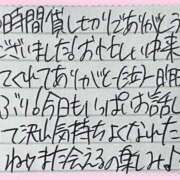 の時間貸し切りでありがとう
ございました!お忙しい中来
てくれてありがとう
ぶり!今日もいっぱいお話し
て沢山気持ちよくなれた
ねまた会えるの楽しみ